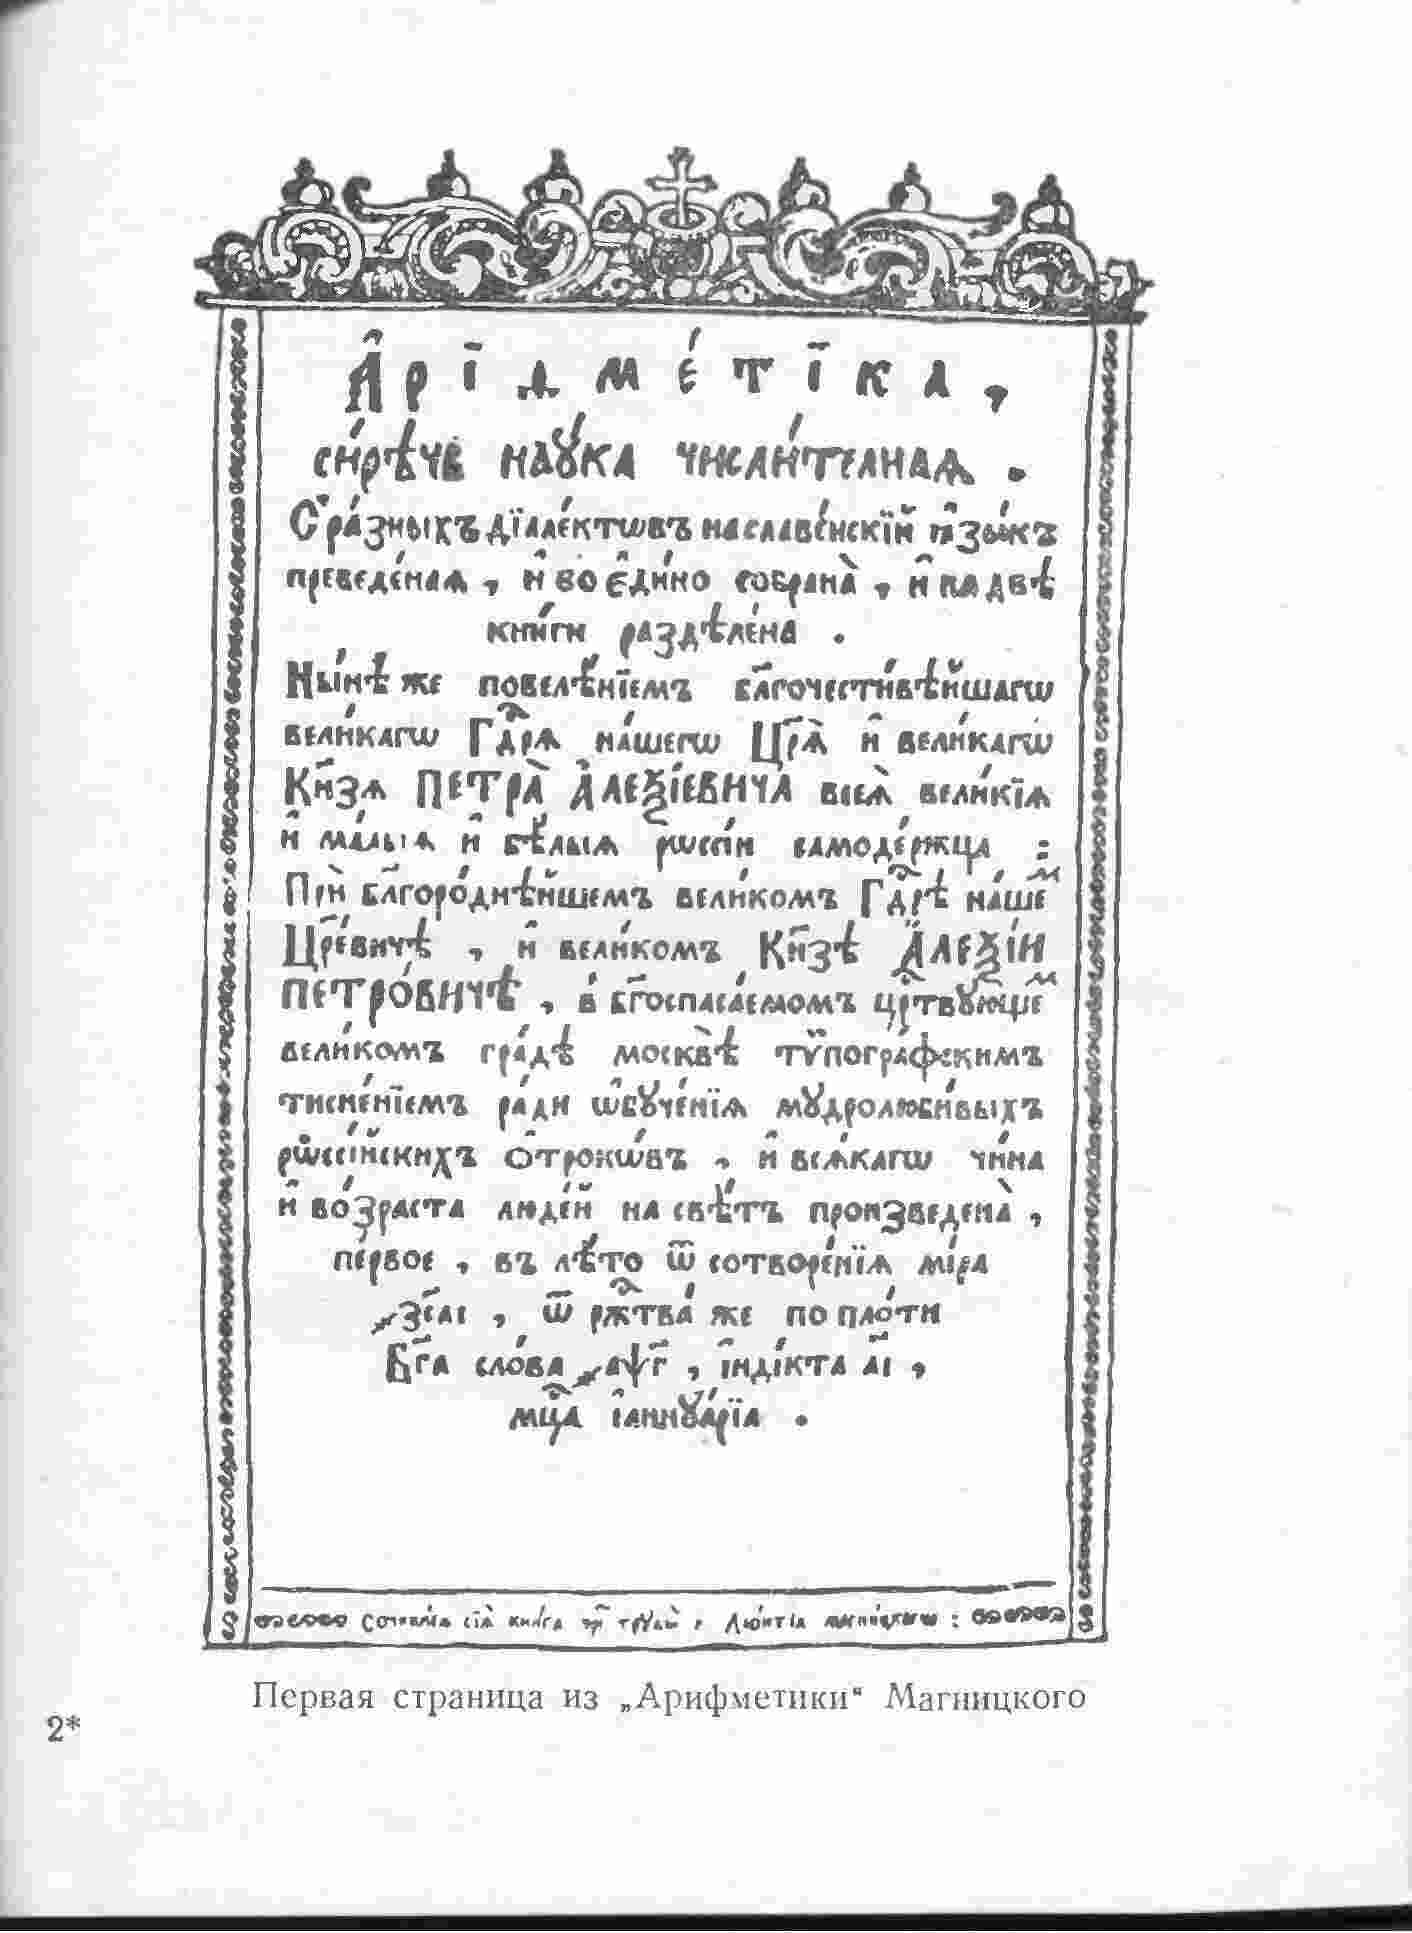 А҆рїѳме́тїка,
си́рѣчь наꙋ́ка числи́телнаѧ.
С̾ ра́зныхъ дїале́ктѡвъ на славе́нскїй ꙗ҆зы́къ
преведе́наѧ, и҆ во є҆ди́но собрана̀, и҆ на двѣ̀
кни́ги раздѣле́на.
Ны́нѣ же повелѣ́нїемъ бл҃гочести́вѣйшагѡ
вели́кагѡ Гдⷭ҇рѧ на́шегѡ Цр҃ѧ̀ и҆ вели́кагѡ
Кн҃зѧ ПЕТРА̀ А҆ЛЕѮІ́ЕВИЧА всеѧ̀ вели́кїѧ
и҆ ма́лыѧ и҆ бѣ́лыѧ рѡссі́и самоде́ржца :
Прѝ бл҃горо́днѣйшемъ вели́комъ Гдⷭ҇рѣ на́шеⷨ
Цр҃е́вичѣ, и҆ вели́комъ Кн҃зѣ А҆ЛЕѮІ́И
ПЕТРО́ВИЧѢ, в̾ бг҃оспаса́емомъ црⷭ҇твꙋющеⷨ
вели́комъ гра́дѣ москвѣ̀ тѷпогра́фскимъ
тисне́нїемъ ра́ди ѡ҆бꙋче́нїѧ мꙋдролюби́выхъ
рѡссі́йскихъ ѻ҆трокѡ́въ, и҆ всѧ́кагѡ чи́на
и҆ во́зраста люде́й на свѣ́тъ произведена̀,
пе́рвое, въ лѣ́то ѿ сотворе́нїѧ мі́ра
҂зс҃аі, ѿ ржⷭ҇тва̀ же по пло́ти
Бг҃а сло́ва ҂аѱ҃г, і҆нді́кта а҃і,
мцⷭ҇а і҆аннꙋа́рїа.
Сочинѝсѧ сїѧ̀ кни́га чрез̾ трꙋды̀, Лео́нтїа магни́цкагѡ :
Первая страница из „Арифметики“ Магницкого
2*